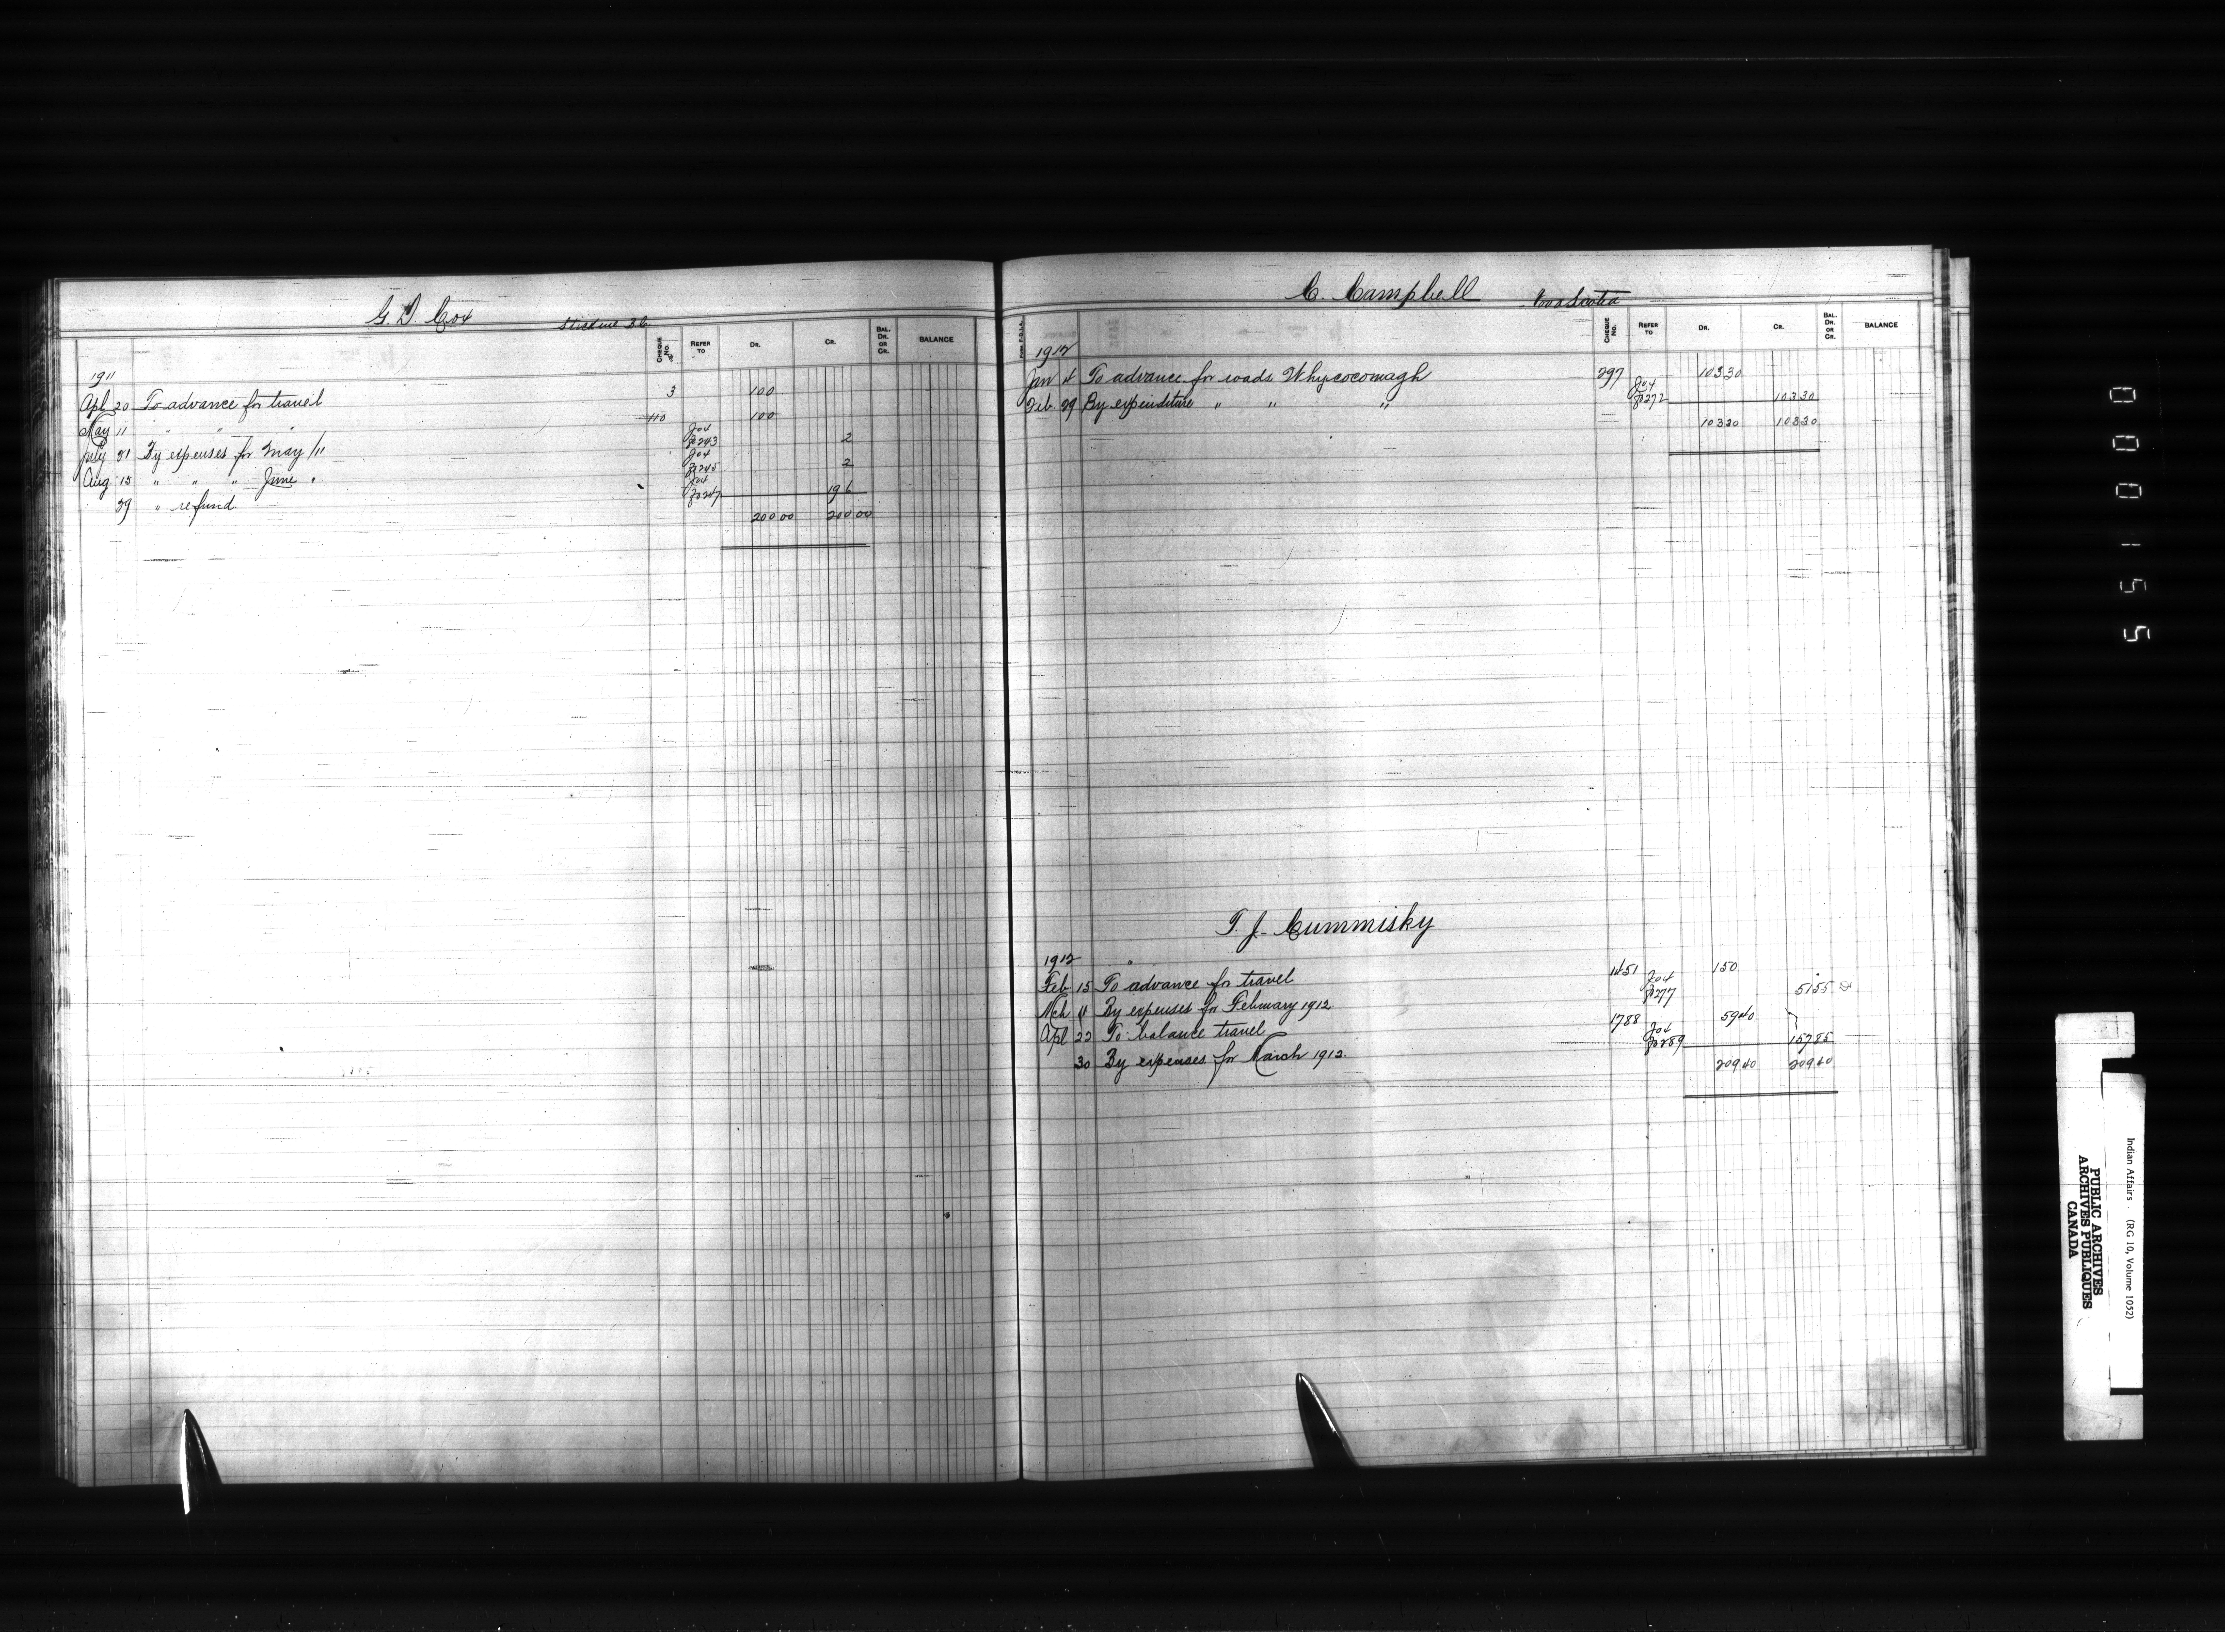 G. D. Cox Stickine B.C.
CHEQUE No. REFER TO DR. CR. BAL. DR. OR CR. BALANCE
1911
Apl 20 To advance for travel 3 100
May 11 " " " 110 100
July 31 By expenses for May /11 Jo4 fo243 2
Aug 15 " " " June " Jo4 fo245 2
29 " refund Jo4 fo247 196
200 00 200 00
C. Campbell Nova Scotia
CHEQUE No. REFER TO DR. CR. BAL. DR. OR CR. BALANCE
1912
Jan 4 To advance for roads Whycocomagh 297 103 30
Feb 29 By expenditure " " " Jo4 fo272 103 30
103 30 103 30
T. J. Cummisky
1912
Feb 15 To advance for travel 1451 150
Mch 11 By expenses for February 1912 Jo4 fo277 51 55
Apl 22 To balance travel 1788 59 40
30 By expenses for March 1912 Jo4 fo289 157 85
209 40 209 40
0000155
Indian Affairs. (RG 10, Volume 1052)
PUBLIC ARCHIVES
ARCHIVES PUBLIQUES
CANADA